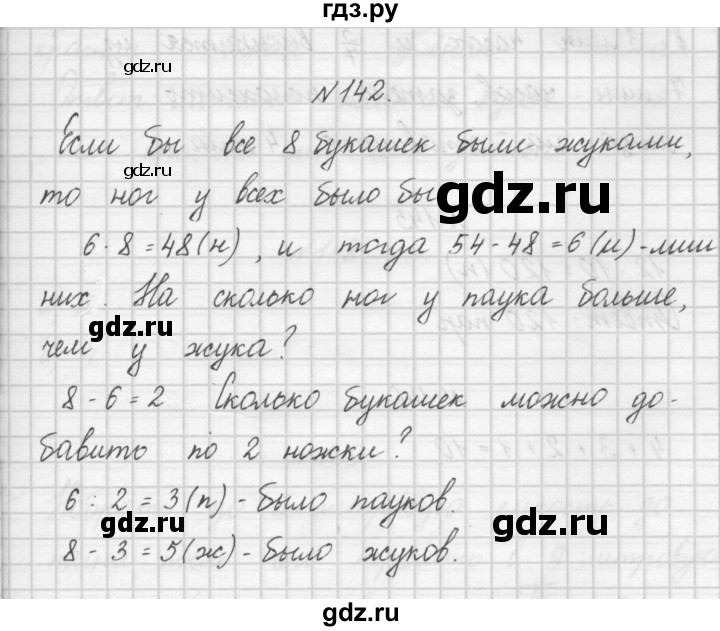 гдз.ру
gdz.ru
N 142.
Если бы все 8 букашек были жуками,
gdz.ru
то ног у всех было бы
gdz.ru
6·8=48(н), и тогда 54-48=6(н)-лиш
них. На сколько ног у паука больше,
gdz.ru
чем у жука?
8-6=2 Сколько букашек можно до-
бавить по 2 ножки?
6:2=3(п)-было пауков.
gdz.ru
gdz.ru
8-3=5(ж)-было жуков.
gdz.ru